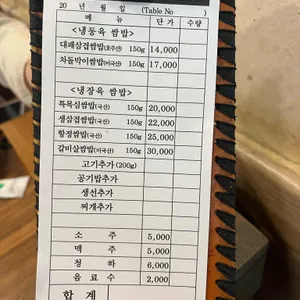 20 년 월 일 (Table No )
메 뉴 단 가 수량
<냉동육 쌈밥>
대패삼겹쌈밥(호주산) 150g 14,000
차돌박이쌈밥(미국산) 150g 17,000
<냉장육 쌈밥>
특목심쌈밥(국산) 150g 20,000
생삼겹쌈밥(국산) 150g 22,000
항정쌈밥(국산) 150g 25,000
갈비살쌈밥(미국산) 150g 30,000
고기추가 (200g)
공기밥추가
생선추가
찌개추가
소 주 5,000
맥 주 5,000
청 하 6,000
음 료 수 2,000
합 계